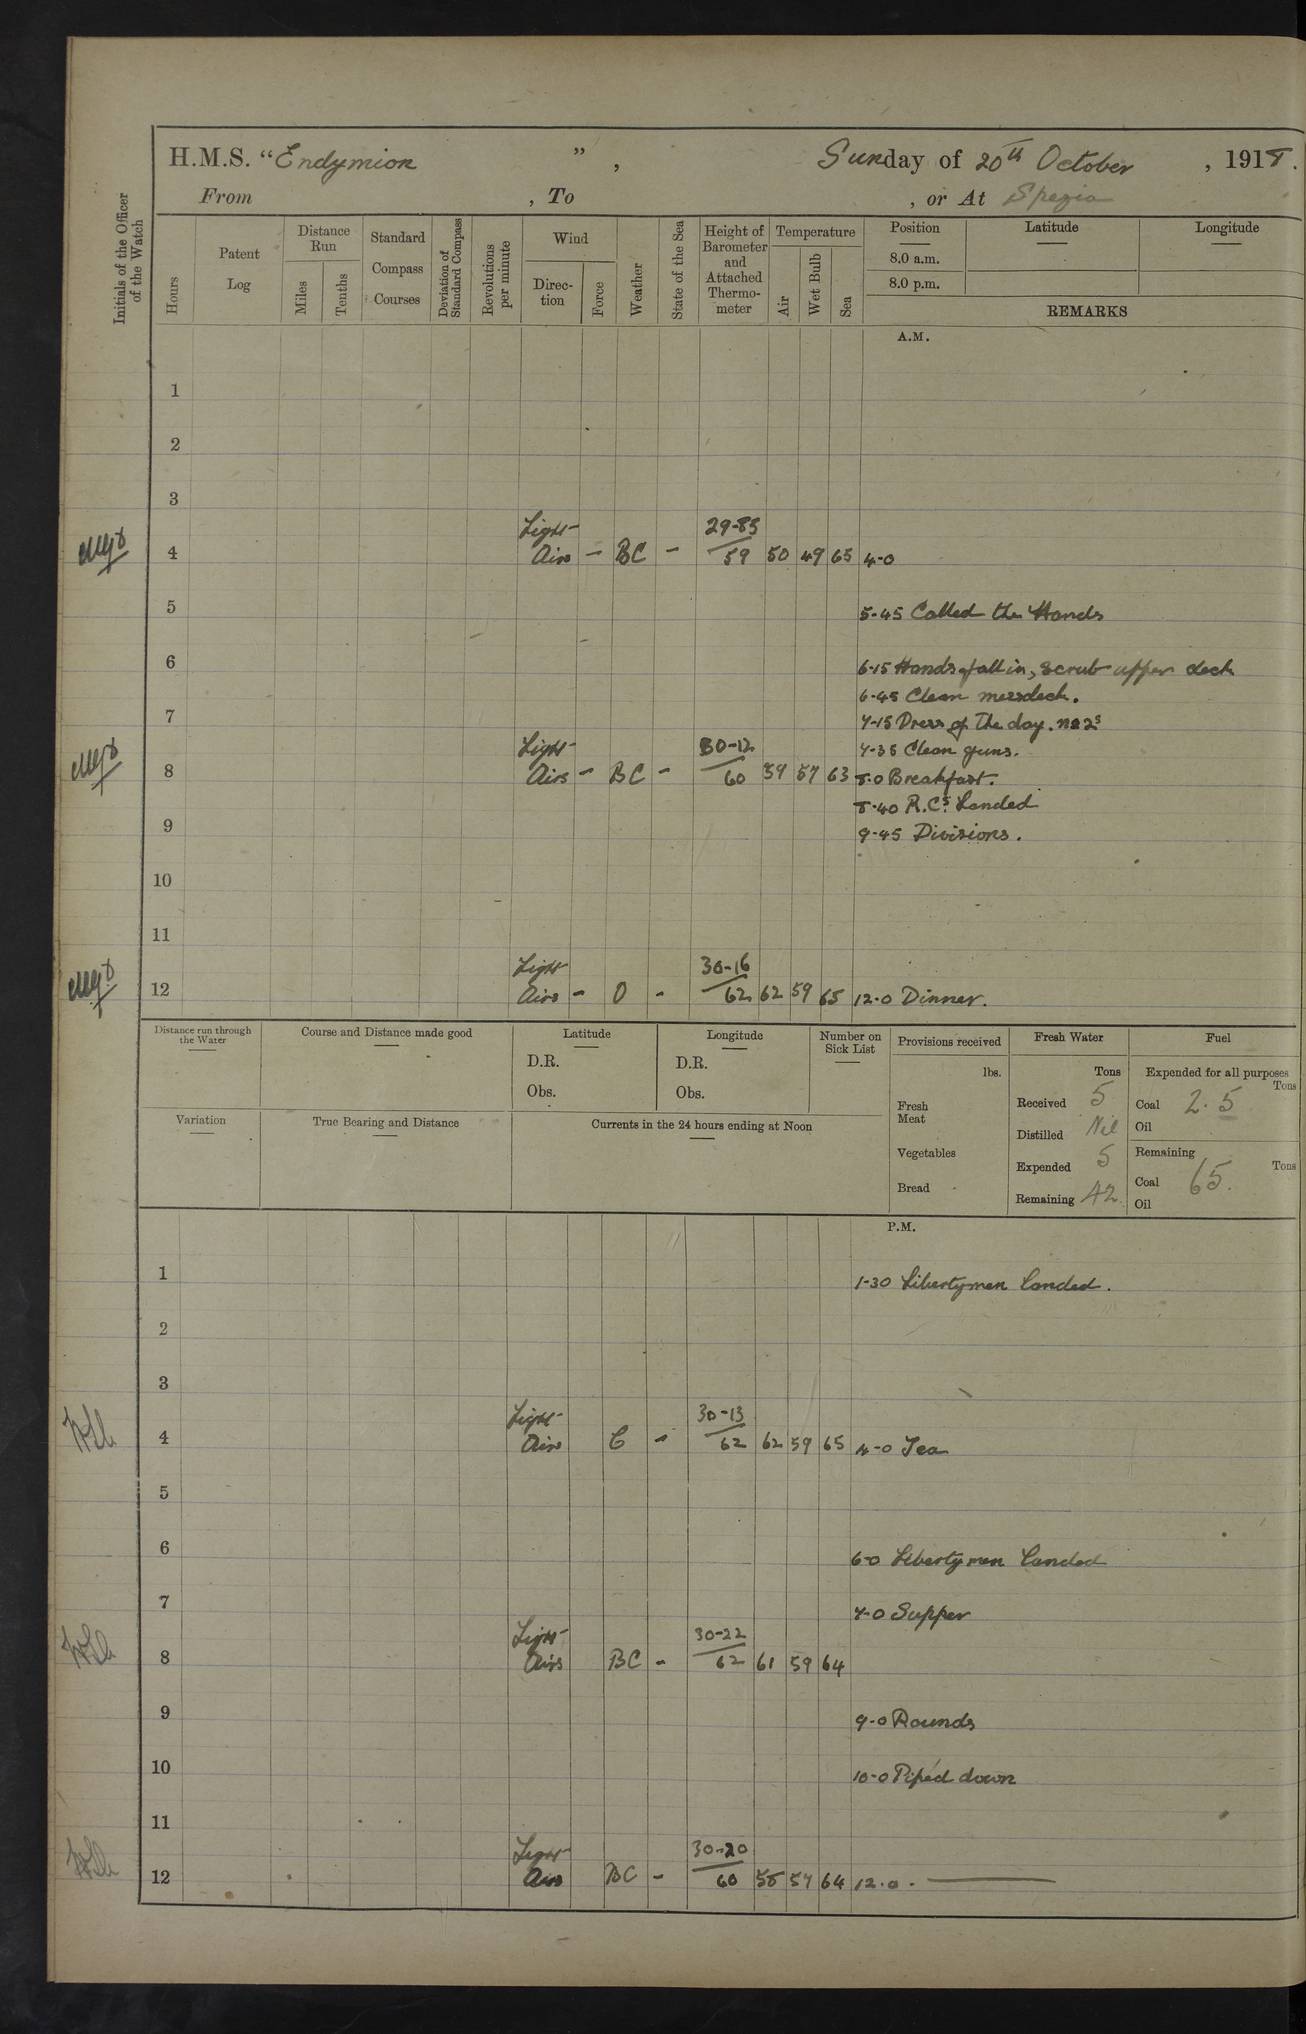 H.M.S. "Endymion", Sunday of 20th October, 1918.
From , To , or At Spezia
Initials of the Officer of the Watch
Hours
Patent Log
Distance Run
Miles
Tenths
Standard Compass Courses
Deviation of Standard Compass
Revolutions per minute
Wind
Direction
Force
Weather
State of the Sea
Height of Barometer and Attached Thermometer
Temperature
Air
Wet Bulb
Sea
Position
8.0 a.m.
8.0 p.m.
Latitude
Longitude
REMARKS
A.M.
1
2
3
Light 29-83
4 Airs - BC - 59 50 49 65 4-0
5 5-45 Called the Hands
6 6-15 Hands fall in, scrub upper deck
6-45 Clean messdeck.
7 7-15 Dress of the day. no 2s
Light 30-12 7-35 Clean guns.
8 Airs - BC - 60 59 57 63 8.0 Breakfast.
8.40 R.Cs. Landed
9 9-45 Divisions.
10
11
Light 30-16
12 Airs - O - 62 62 59 65 12.0 Dinner.
Distance run through the Water
Course and Distance made good
Latitude
D.R.
Obs.
Longitude
D.R.
Obs.
Number on Sick List
Provisions received
lbs.
Fresh Meat
Vegetables
Bread
Fresh Water
Tons
Received 5
Distilled Nil
Expended 5
Remaining 42
Fuel
Expended for all purposes
Tons
Coal 2.5
Oil
Remaining
Tons
Coal 65.
Oil
Variation
True Bearing and Distance
Currents in the 24 hours ending at Noon
P.M.
1 1-30 Libertymen landed.
2
3
Light 30-13
4 Airs C - 62 62 59 65 4-0 Tea
5
6 6-0 Libertymen landed
7 7-0 Supper
Light 30-22
8 Airs BC - 62 61 59 64
9 9-0 Rounds
10 10-0 Piped down
11
Light 30-20
12 Airs BC - 60 58 57 64 12.0.